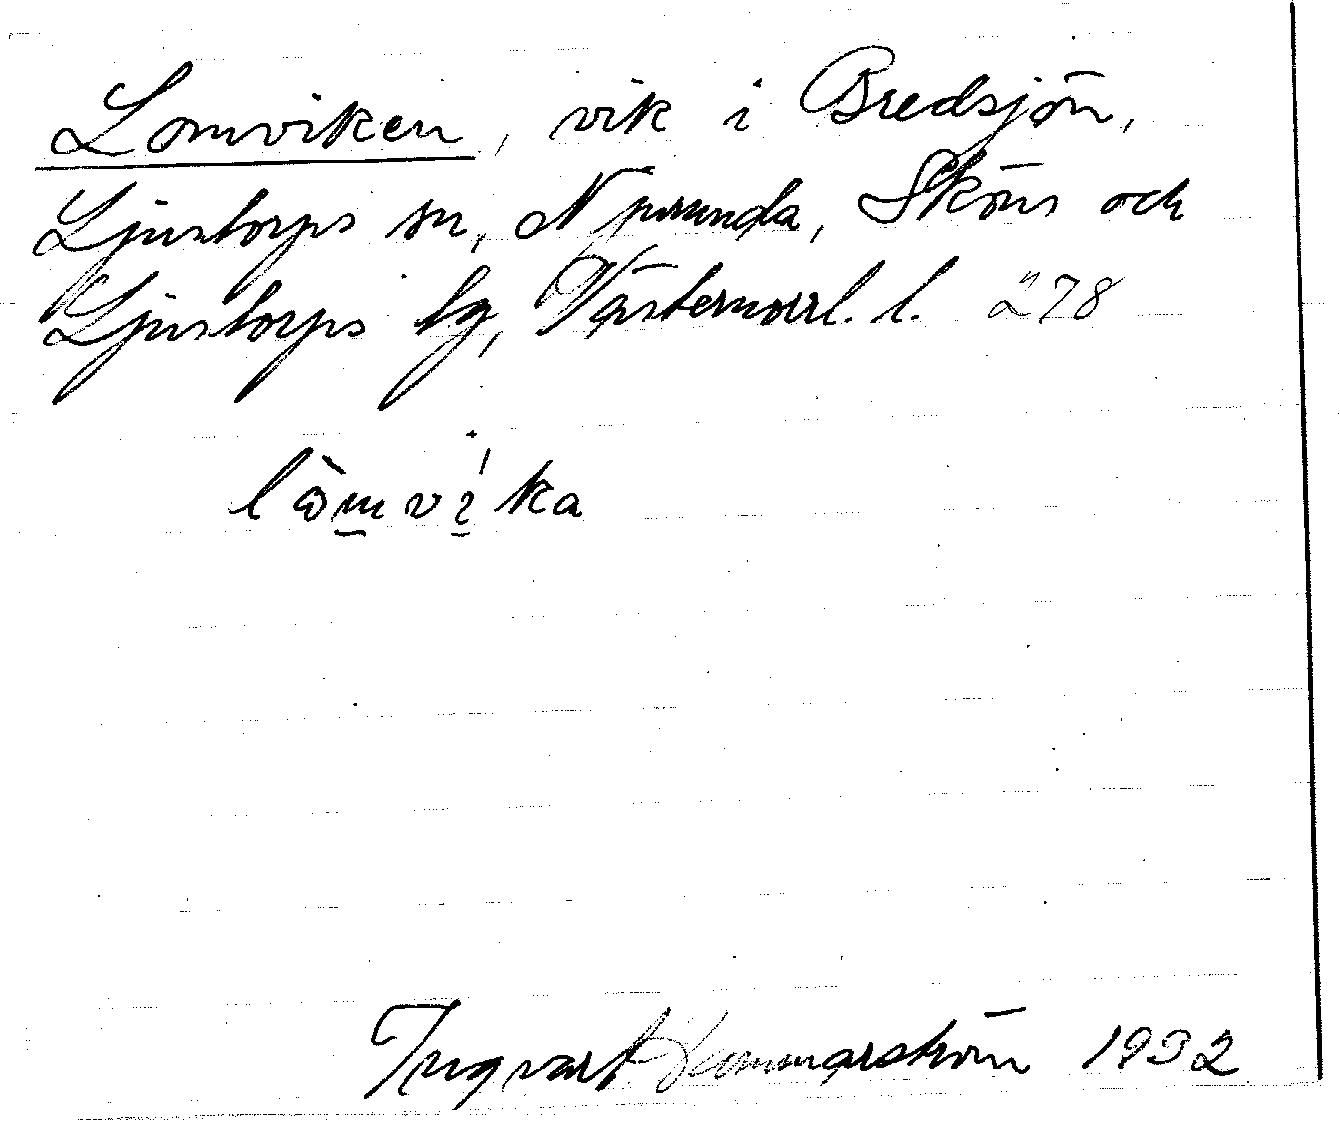 Lomviken, vik i Bredsjön,
Ljustorps sn, Njurunda, Sköns och
Ljustorps tg, Västernorrl. l. 278
lòmvi̱ka
Ingvart Hammarström 1932